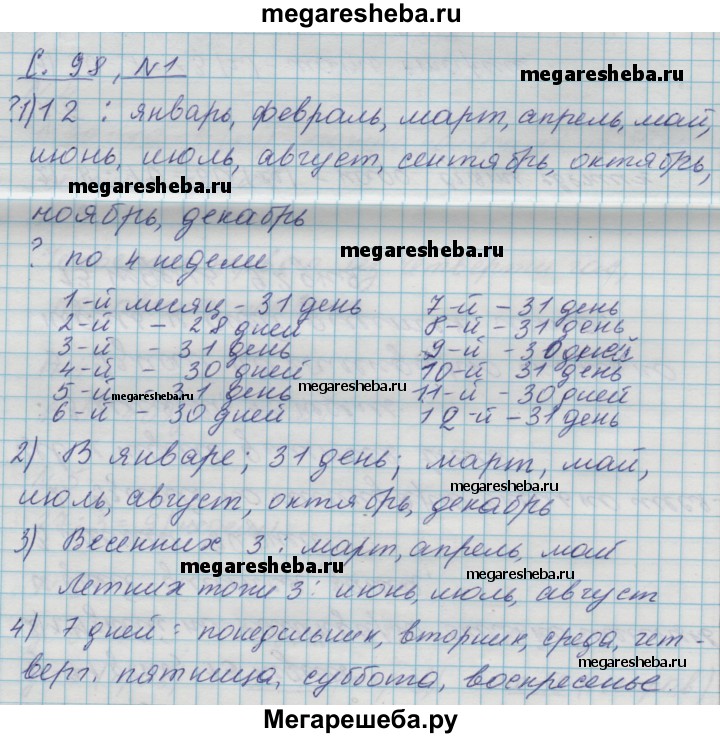 megaresheba.ru
С. 98, №1
megaresheba.ru
?1) 12 : январь, февраль, март, апрель, май,
июнь, июль, август, сентябрь, октябрь,
megaresheba.ru
ноябрь, декабрь
? по 4 недели
megaresheba.ru
1-й месяц - 31 день
2-й - 28 дней
3-й - 31 день
4-й - 30 дней
5-й - 31 день
6-й - 30 дней
7-й - 31 день
8-й - 31 день
9-й - 30 дней
10-й - 31 день
11-й - 30 дней
12-й - 31 день
megaresheba.ru
megaresheba.ru
2) В январе; 31 день; март, май,
megaresheba.ru
июль, август, октябрь, декабрь
3) Весенних 3 : март, апрель, май
megaresheba.ru
megaresheba.ru
Летних тоже 3 : июнь, июль, август
4) 7 дней : понедельник, вторник, среда, чет-
megaresheba.ru
верг, пятница, суббота, воскресенье.
Мегарешеба.ру